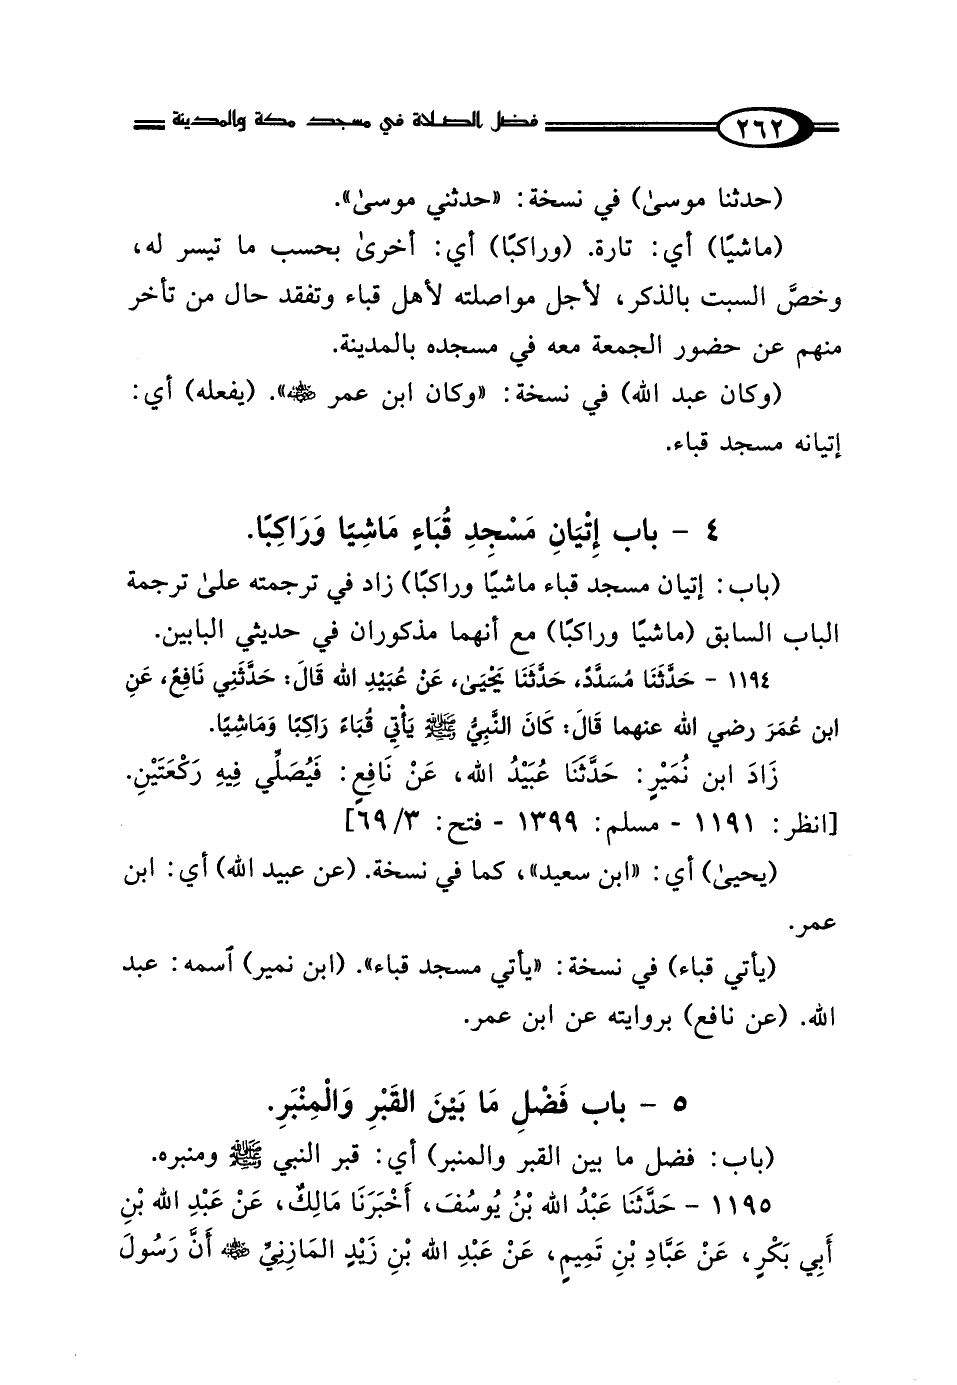 ٢٦٢ فضل الصلاة في مسجد مكة والمدينة
(حدثنا موسىٰ) في نسخة: «حدثني موسىٰ».
(ماشيًا) أي: تارة. (وراكبًا) أي: أخرىٰ بحسب ما تيسر له،
وخصَّ السبت بالذكر، لأجل مواصلته لأهل قباء وتفقد حال من تأخر
منهم عن حضور الجمعة معه في مسجده بالمدينة.
(وكان عبد الله) في نسخة: «وكان ابن عمر رضي الله عنهما». (يفعله) أي:
إتيانه مسجد قباء.
٤ - باب إِتْيَانِ مَسْجِدِ قُبَاءٍ مَاشِيًا وَرَاكِبًا.
(باب: إتيان مسجد قباء ماشيًا وراكبًا) زاد في ترجمته علىٰ ترجمة
الباب السابق (ماشيًا وراكبًا) مع أنهما مذكوران في حديثي البابين.
١١٩٤ - حَدَّثَنَا مُسَدَّدٌ، حَدَّثَنَا يَحْيَىٰ، عَنْ عُبَيْدِ الله قَالَ: حَدَّثَنِي نَافِعٌ، عَنِ
ابن عُمَرَ رضي الله عنهما قَالَ: كَانَ النَّبِيُّ ﷺ يَأْتِي قُبَاءً رَاكِبًا وَمَاشِيًا.
زَادَ ابن نُمَيْرٍ: حَدَّثَنَا عُبَيْدُ الله، عَنْ نَافِعٍ: فَيُصَلِّي فِيهِ رَكْعَتَيْنِ.
[انظر: ١١٩١ - مسلم: ١٣٩٩ - فتح: ٣/ ٦٩]
(يحيىٰ) أي: «ابن سعيد»، كما في نسخة. (عن عبيد الله) أي: ابن
عمر.
(يأتي قباء) في نسخة: «يأتي مسجد قباء». (ابن نمير) ٱسمه: عبد
الله. (عن نافع) بروايته عن ابن عمر.
٥ - باب فَضْلِ مَا بَيْنَ القَبْرِ وَالْمِنْبَرِ.
(باب: فضل ما بين القبر والمنبر) أي: قبر النبي ﷺ ومنبره.
١١٩٥ - حَدَّثَنَا عَبْدُ الله بْنُ يُوسُفَ، أَخْبَرَنَا مَالِكٌ، عَنْ عَبْدِ الله بْنِ
أَبِي بَكْرٍ، عَنْ عَبَّادِ بْنِ تَمِيمٍ، عَنْ عَبْدِ الله بْنِ زَيْدٍ المَازِنِيِّ رضي الله عنه أَنَّ رَسُولَ